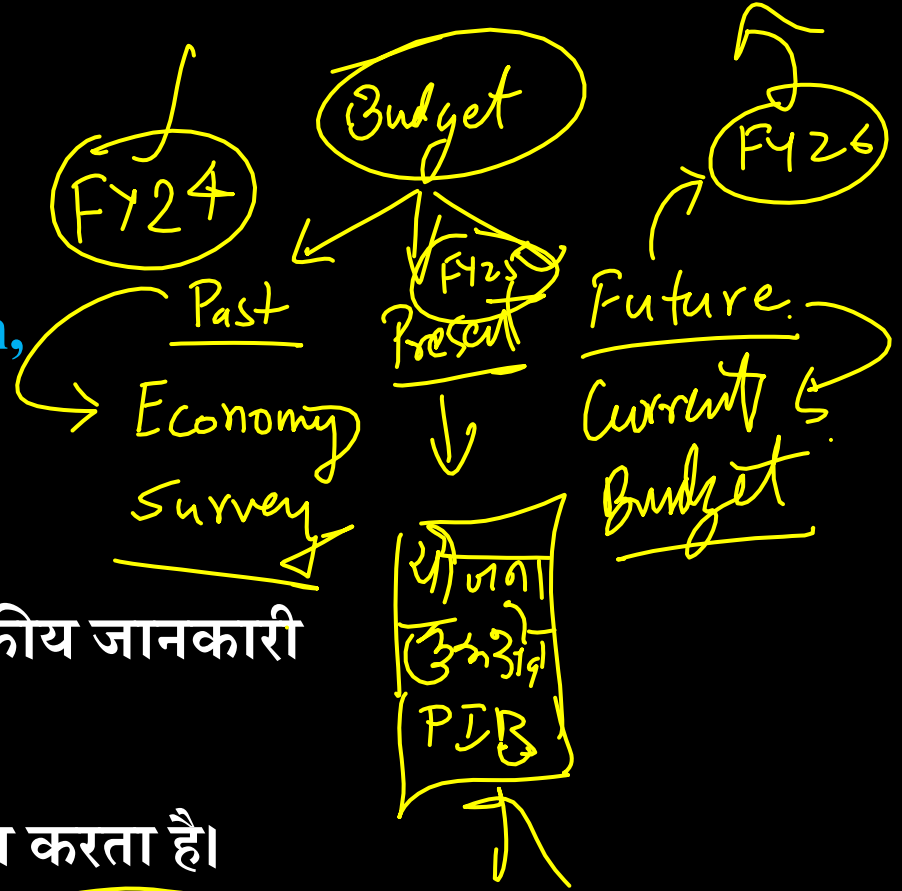 Budget
FY24
FY26
FY25
Past
Present
Future
Economy
Survey
Current
Budget
योजना
कुरुक्षेत्र
PIB
जानकारी
करता है।